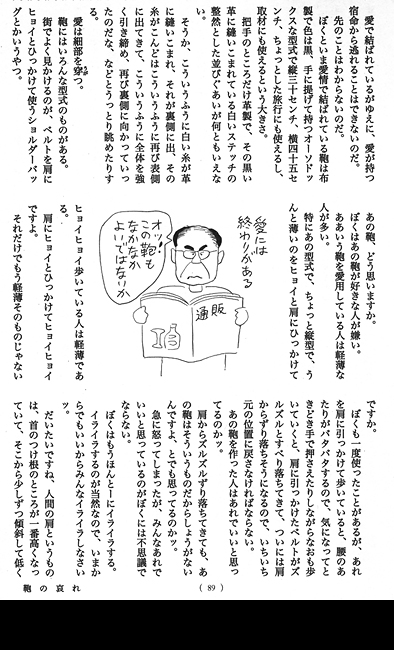 愛で结ばれているがゆえに、愛が持つ
宿命から逃れることはできないのだ。
先のことはわからないのだ。
ぼくといま愛情で結ばれている鞄は布
製で色は黒、手に提げて持つオーソドッ
クスな型式で縦三十センチ、横四十五セ
ンチ、ちょっとした旅行にも使えるし、
取材にも使えるという大きさ。
把手のところだけ革製で、その黒い
革に縫いこまれている白いステッチの
整然とした並びぐあいが何ともいえな
い。
そうか、こういうふうに白い糸が革
に縫いこまれ、それが裏側に出、その
糸がこんどはこういうふうに再び表側
に出てきて、こういうふうに全体を強
く引き締め、再び裏側に向かっていっ
たのだな、などとうっとり眺めたりす
る。
愛は細部を穿つ。
うが
鞄にはいろんな型式のものがある。
街でよく見かけるのが、ベルトを肩に
ヒョイとひっかけて使うショルダーバッ
グとかいうやつ。
あの鞄、どう思いますか。
ぼくはあの鞄が好きな人が嫌い。
ああいう鞄を愛用している人は軽薄な
人が多い。
特にあの型式で、ちょっと縦型で、う
んと薄いのをヒョイと肩にひっかけて
愛には
終わりがある
通販
オッ!
この鞄も
なかなか
よいではないか
ヒョイヒョイ歩いている人は軽薄であ
る。
肩にヒョイとひっかけてヒョイヒョイ
ですよ。
それだけでもう軽薄そのものじゃない
ですか。
ぼくも一度使ったことがあるが、あれ
を肩に引っかけて歩いていると、腰のあ
たりがバタバタするので、気になってと
きどき手で押さえたりしながらなおも歩
いていくと、肩に引っかけたベルトがズ
ルズルとすべり落ちてきて、ついには肩
からずり落ちそうになるので、いちいち
元の位置に戻さなければならない。
あの鞄を作った人はあれでいいと思っ
てるのかッ。
肩からズルズルずり落ちてきても、あ
の鞄はそういうものだからしょうがない
んですよ、とでも思ってるのかッ。
急に怒ってしまったが、みんなあれで
いいと思っているのがぼくには不思議で
ならない。
ぼくはもうほんとーにイライラする。
イライラするのが当然なので、いまか
らでもいいからみんなイライラしなさい
ッ。
だいたいですね、人間の肩というもの
は、首のつけ根のところが一番高くなっ
ていて、そこから少しずつ傾斜して低く
( 89 )
鞄の哀れ